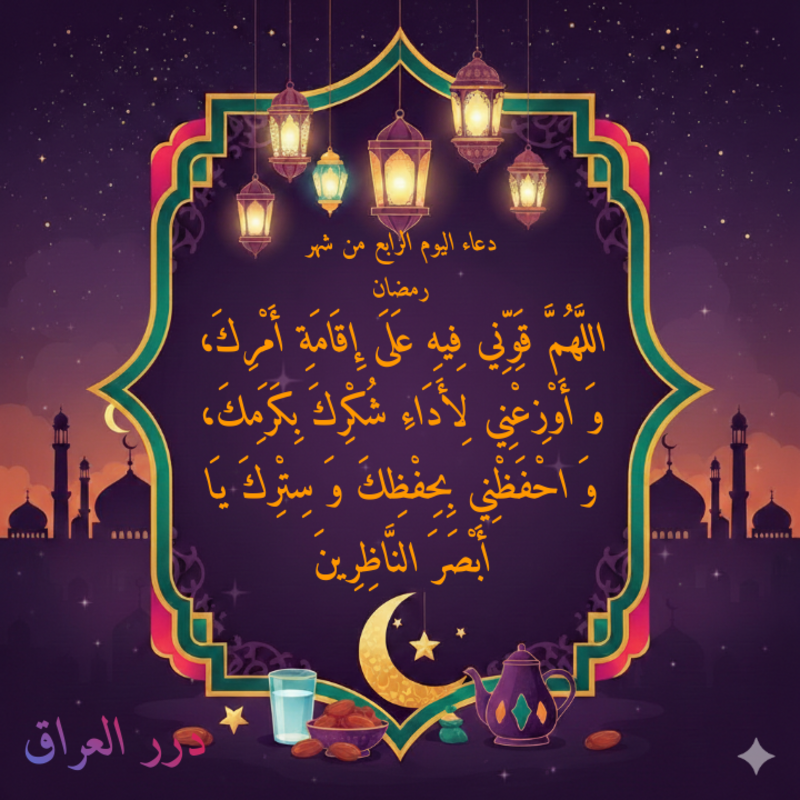 دعاء اليوم الرابع من شهر
رمضان
اللَّهُمَّ قَوِّنِي فِيهِ عَلَى إِقَامَةِ أَمْرِكَ،
وَ أَوْزِعْنِي لِأَدَاءِ شُكْرِكَ بِكَرَمِكَ،
وَ احْفَظْنِي بِحِفْظِكَ وَ سِتْرِكَ يَا
أَبْصَرَ النَّاظِرِينَ
درر العراق